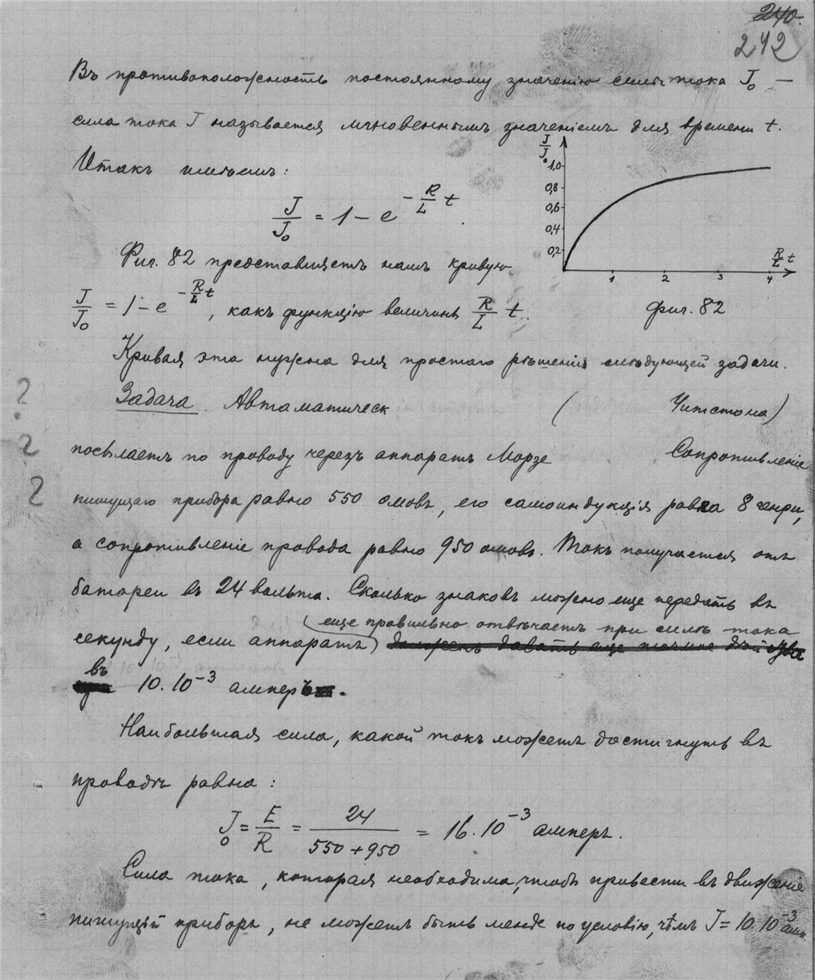 240.
242
Въ противоположность постоянному значенію силы тока J₀ —
сила тока J называется мгновеннымъ значеніемъ для времени t.
Итакъ имѣемъ:
J/J₀ = 1 – e^(–R/L t).
J/J₀
1,0
0,8
0,6
0,4
0,2
1 2 3 4
R/L t
Фиг. 82
Фиг. 82 представляетъ намъ кривую
J/J₀ = 1 – e^(–R/L t), какъ функцію величины R/L t.
Кривая эта нужна для простаго рѣшенія слѣдующей задачи.
Задача. Автоматическ ( Читстона)
? посылаетъ по проводу черезъ аппаратъ Морзе Сопротивленіе
? пишущаго прибора равно 550 омовъ, его самоиндукція равна 8 генри,
?
а сопротивленіе провода равно 950 омовъ. Токъ получается отъ
батареи въ 24 вольта. Сколько знаковъ можно еще передать въ
еще правильно отвѣчаетъ при силѣ тока
секунду, если аппаратъ долженъ давать еще
въ
10.10⁻³ амперъ.
Наибольшая сила, какой токъ можетъ достигнуть въ
проводѣ равна:
J₀ = E/R = 24/(550+950) = 16.10⁻³ амперъ.
Сила тока, которая необходима, чтобъ привести въ движеніе
пишущій приборъ, не можетъ быть менѣе по условію, чѣмъ J = 10.10⁻³ амп.